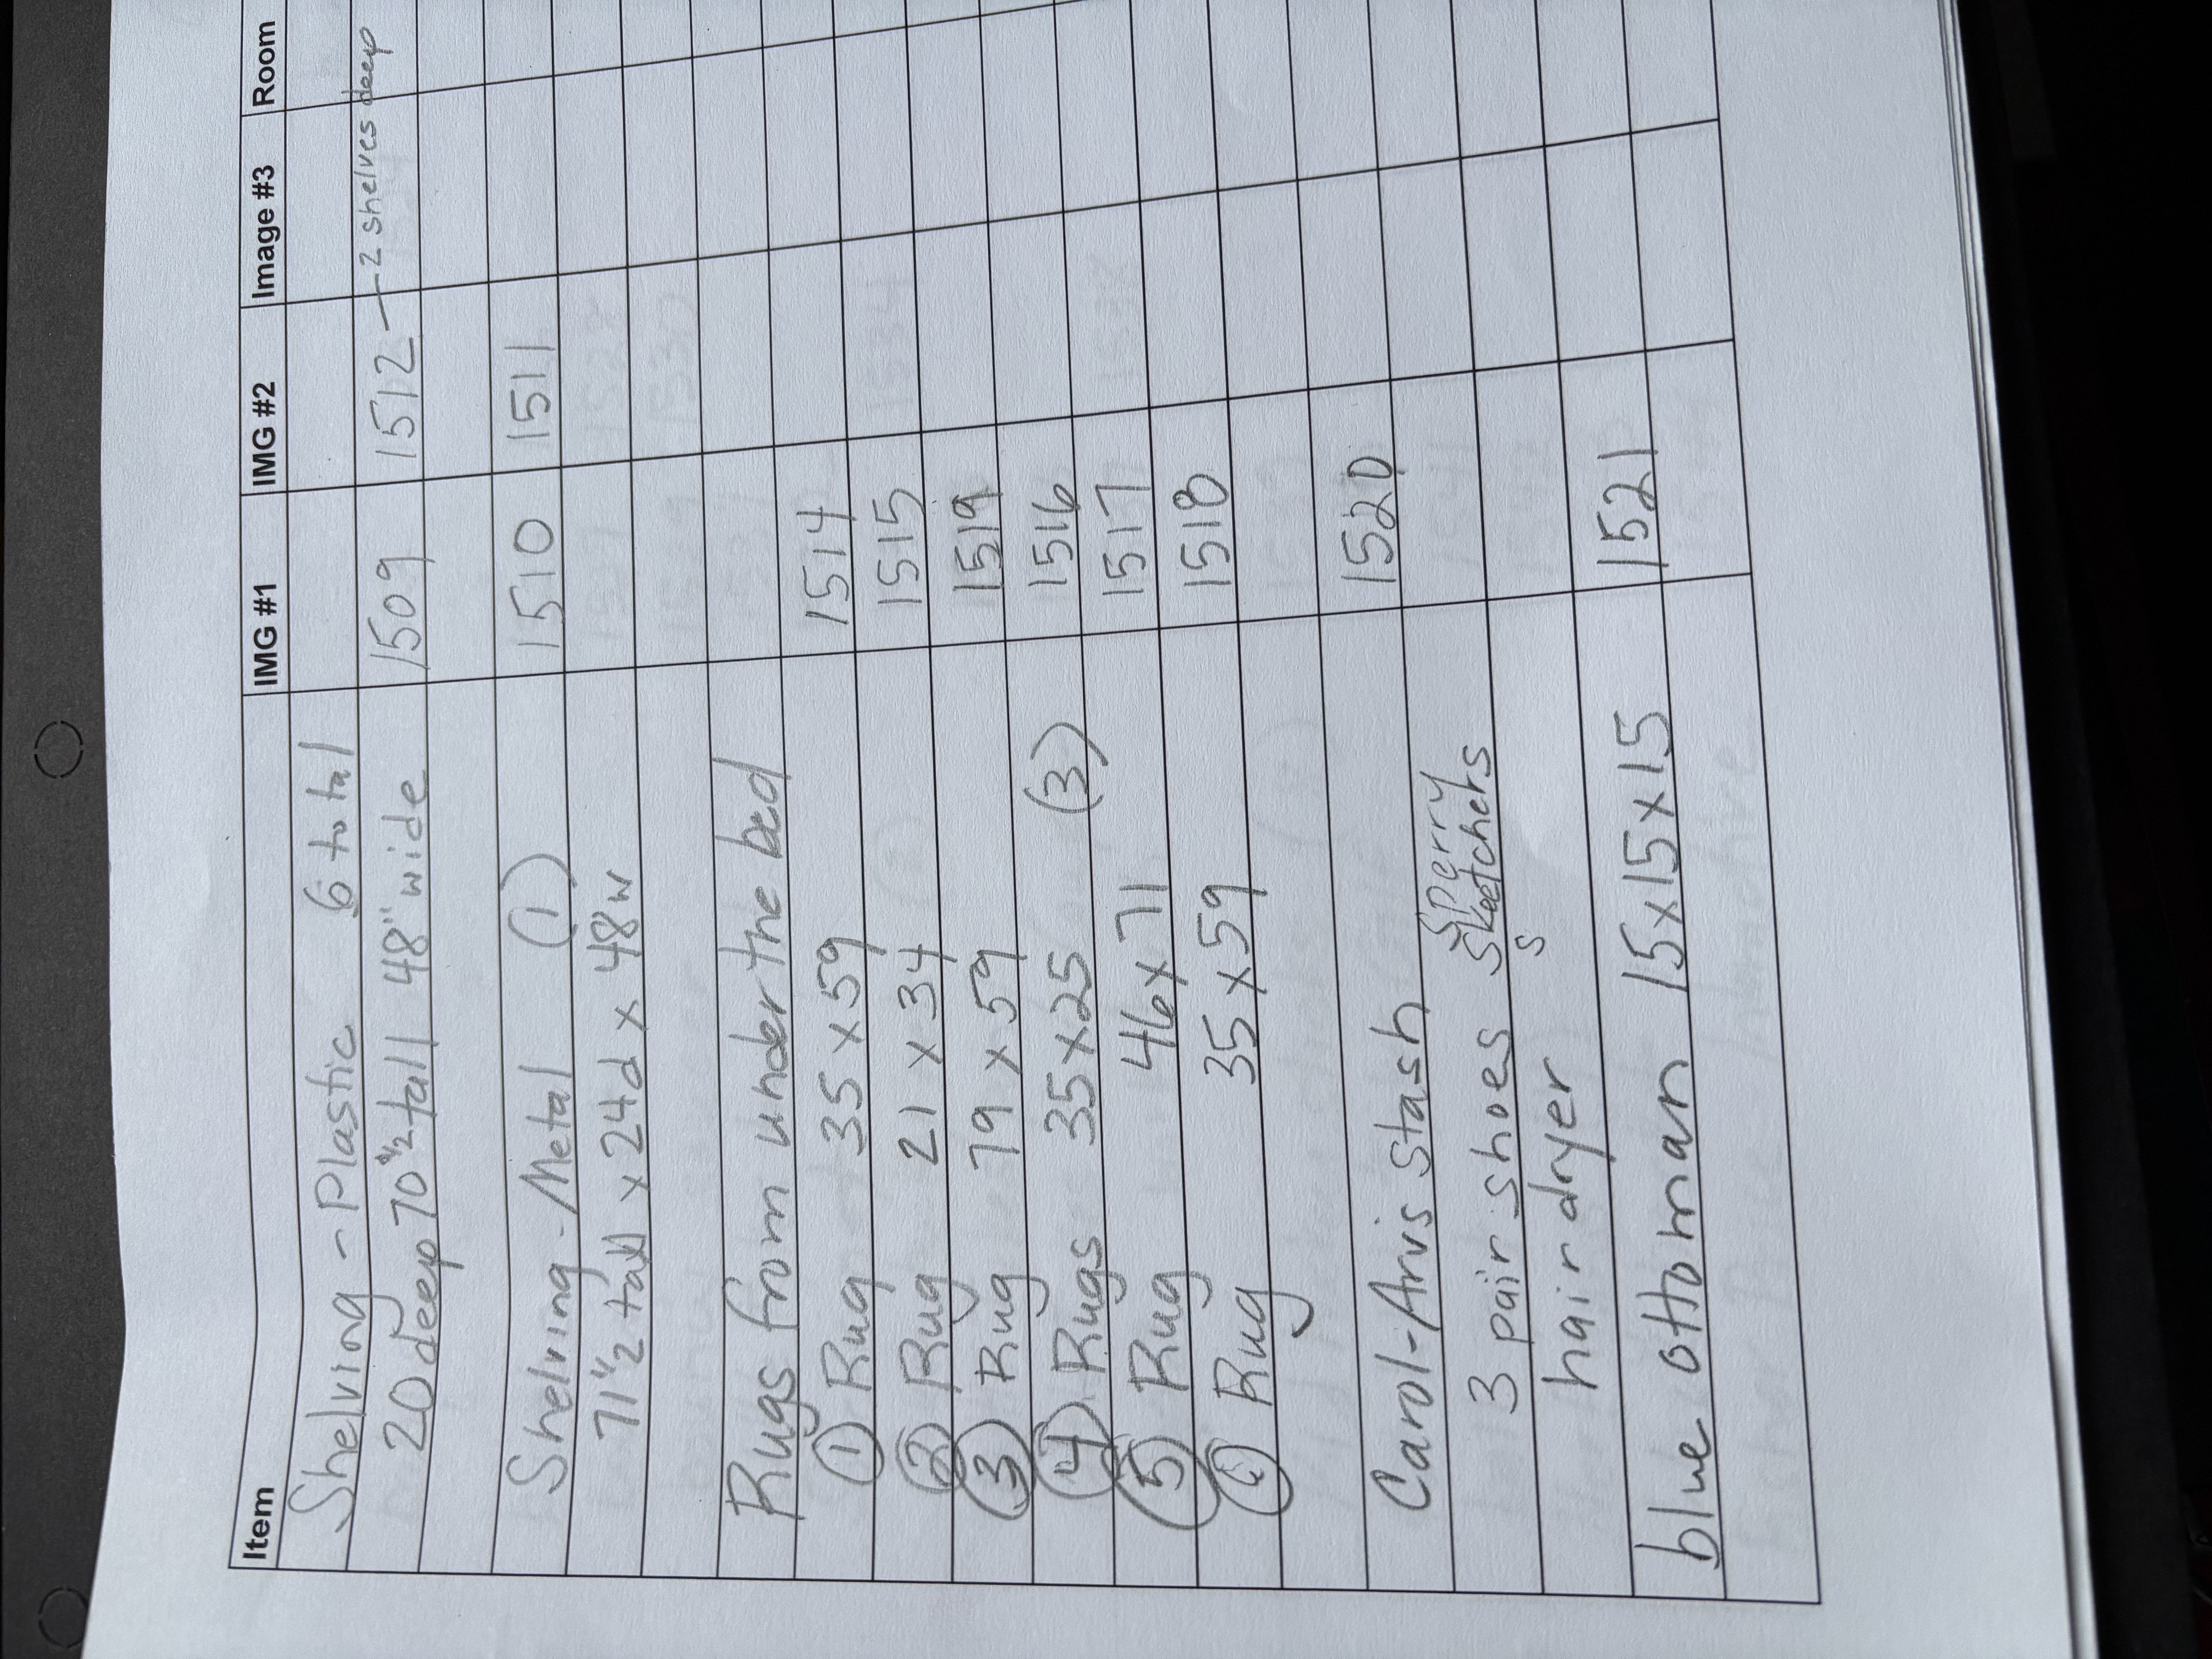 Item IMG #1 IMG #2 Image #3 Room
Shelving - Plastic 6 total
20 deep 70 1/2 tall 48" wide 1509 1512 — 2 shelves deep
Shelving - Metal (1) 1510 1511
71 1/2 tall x 24d x 48w
Rugs from under the bed
1 Rug 35 x 59 1514
2 Rug 21 x 34 1515
3 Rug 79 x 59 1519
4 Rugs 35 x 25 (3) 1516
5 Rug 46 x 71 1517
6 Rug 35 x 59 1518
Carol-Arvs stash 1520
Sperry
3 pair shoes Skeetchers
s
hair dryer
blue ottoman 15x15x15 1521